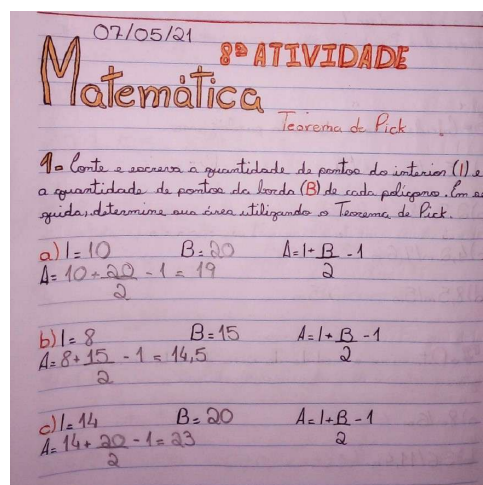 07/05/21
8ª ATIVIDADE
Matemática
Teorema de Pick
1- Conte e escreva a quantidade de pontos do interior (I) e
a quantidade de pontos da borda (B) de cada polígono. Em se
guida, determine sua área utilizando o Teorema de Pick.
a) I = 10 B = 20 A = I + B/2 - 1
A = 10 + 20/2 - 1 = 19
b) I = 8 B = 15 A = I + B/2 - 1
A = 8 + 15/2 - 1 = 14,5
c) I = 14 B = 20 A = I + B/2 - 1
A = 14 + 20/2 - 1 = 23